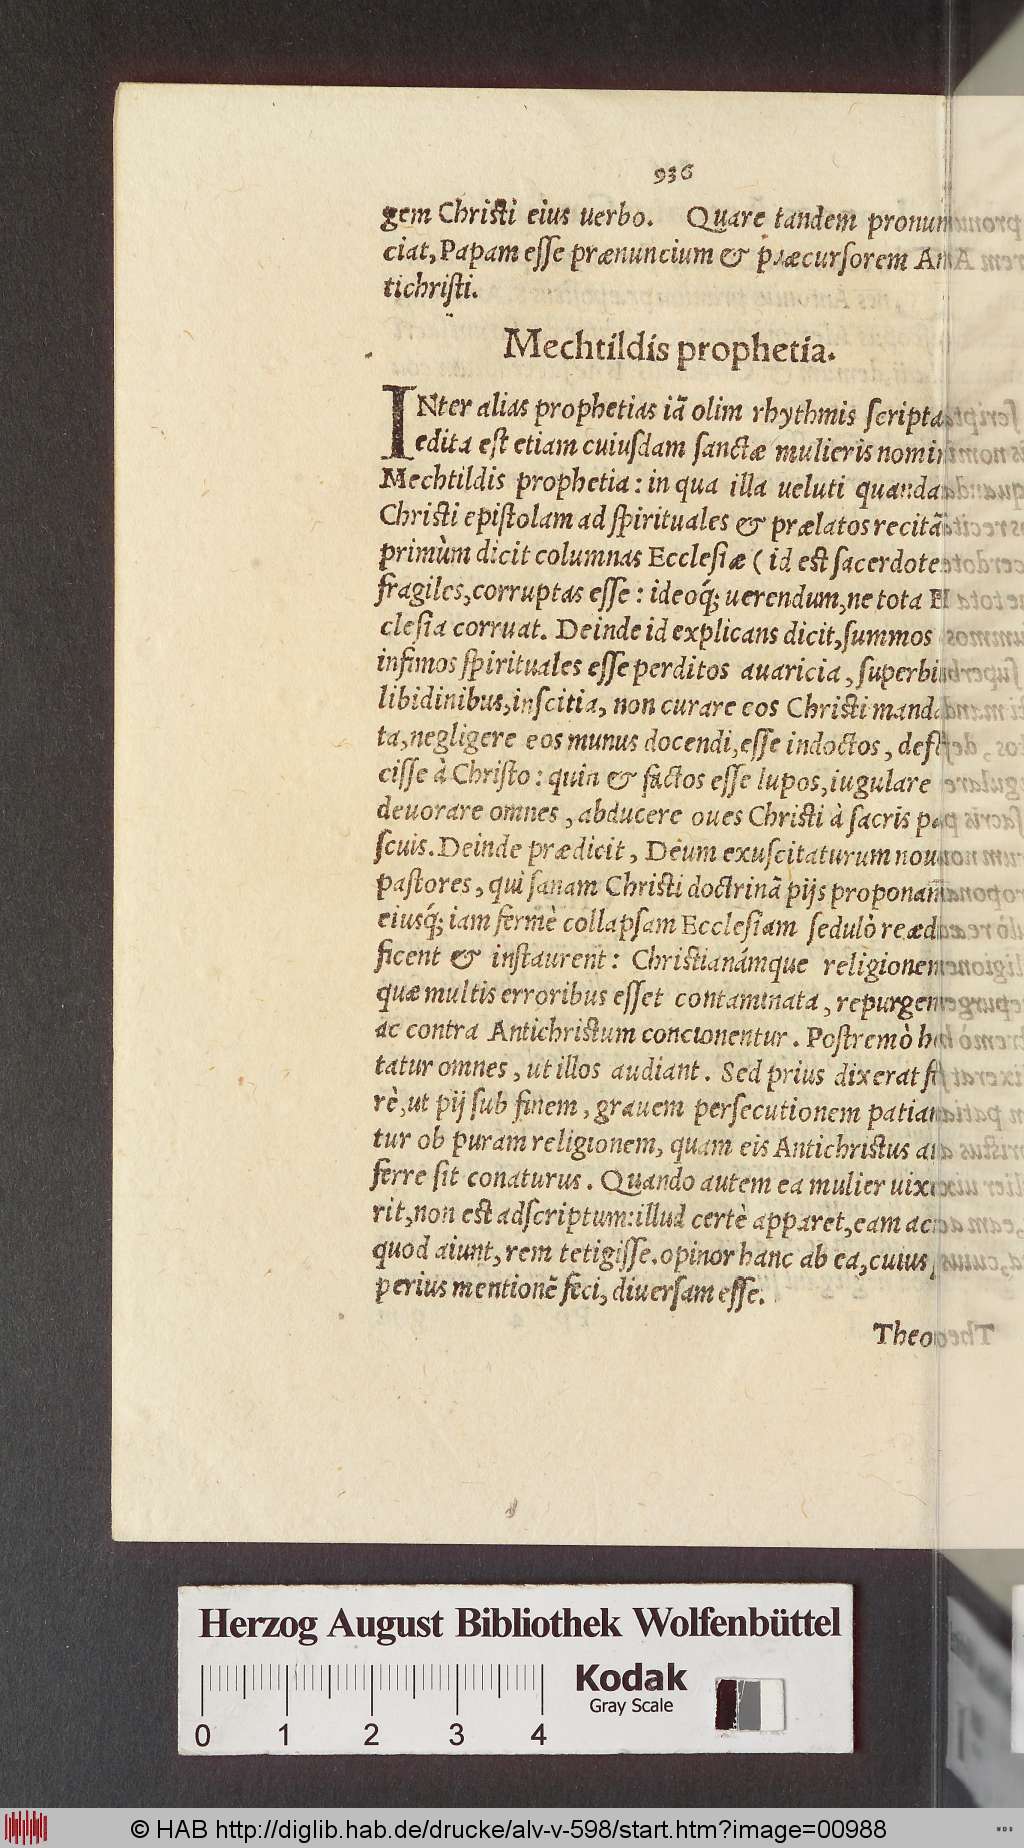 936
gem Christi eius uerbo. Quare tandem pronun
ciat, Papam esse prænuncium & præcursorem An
tichristi.
Mechtildis prophetia.
INter alias prophetias iã olim rhythmis scripta
edita est etiam cuiusdam sanctæ mulieris nomin
Mechtildis prophetia: in qua illa ueluti quanda
Christi epistolam ad spirituales & prælatos recitã
primùm dicit columnas Ecclesiæ (id est sacerdotes
fragiles, corruptas esse: ideoq́; uerendum, ne tota E
clesia corruat. Deinde id explicans dicit, summos
infimos spirituales esse perditos auaricia, superbi
libidinibus, inscitia, non curare eos Christi manda
ta, negligere eos munus docendi, esse indoctos, defe
cisse à Christo: quin & factos esse lupos, iugulare
deuorare omnes, abducere oues Christi à sacris pa
scuis. Deinde prædicit, Deum exuscitaturum nou
pastores, qui sanam Christi doctrinã pijs proponan
eiusq́; iam fermè collapsam Ecclesiam sedulò reædi
ficent & instaurent: Christianámque religionem
quæ multis erroribus esset contaminata, repurgen
ac contra Antichristum concionentur. Postremò ho
tatur omnes, ut illos audiant. Sed prius dixerat fo
rè, ut pij sub finem, grauem persecutionem patian
tur ob puram religionem, quam eis Antichristus au
ferre sit conaturus. Quando autem ea mulier uixe
rit, non est adscriptum: illud certè apparet, eam acu
quod aiunt, rem tetigisse. opinor hanc ab ea, cuius
perius mentionẽ feci, diuersam esse.
Theo
Herzog August Bibliothek Wolfenbüttel
Kodak
Gray Scale
0 1 2 3 4
© HAB http://diglib.hab.de/drucke/alv-v-598/start.htm?image=00988